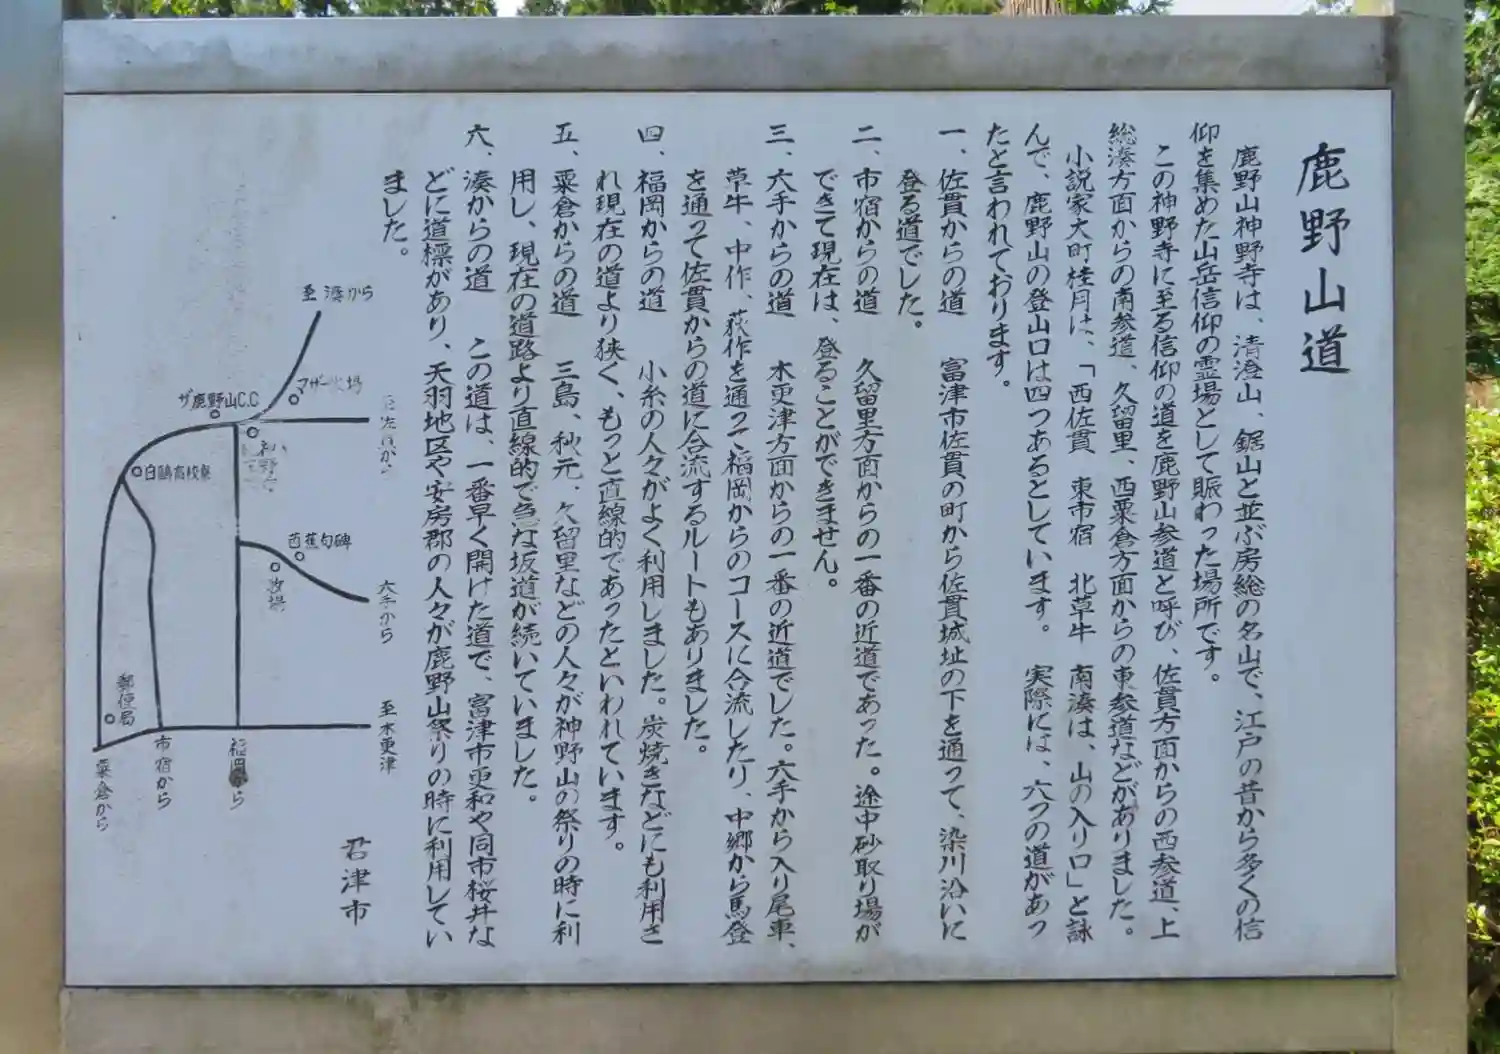 鹿野山道
鹿野山神野寺は、清澄山、鋸山と並ぶ房総の名山で、江戸の昔から多くの信
仰を集めた山岳信仰の霊場として賑わった場所です。
この神野寺に至る信仰の道を鹿野山参道と呼び、佐貫方面からの西参道、上
総湊方面からの南参道、久留里、西粟倉方面からの東参道などがありました。
小説家大町桂月は、「西佐貫 東市宿 北草牛 南湊は、山の入り口」と詠
んで、鹿野山の登山口は四つあるとしています。 実際には、六つの道があっ
たと言われております。
一、佐貫からの道 富津市佐貫の町から佐貫城址の下を通って、染川沿いに
登る道でした。
二、市宿からの道 久留里方面からの一番の近道であった。途中砂取り場が
できて現在は、登ることができません。
三、六手からの道 木更津方面からの一番の近道でした。六手から入り尾車、
草牛、中作、荻作を通って福岡からのコースに合流したり、中郷から馬登
を通って佐貫からの道に合流するルートもありました。
四、福岡からの道 小糸の人々がよく利用しました。炭焼きなどにも利用さ
れ現在の道より狭く、もっと直線的であったといわれています。
五、粟倉からの道 三島、秋元、久留里などの人々が神野山の祭りの時に利
用し、現在の道路より直線的で急な坂道が続いていました。
六、湊からの道 この道は、一番早く開けた道で、富津市更和や同市桜井な
どに道標があり、天羽地区や安房郡の人々が鹿野山祭りの時に利用してい
ました。
君津市
至湊から
マザー牧場
ザ鹿野山C.C
佐貫から
神野寺
白鶴高校寮
芭蕉句碑
牧場
六手から
郵便局
至木更津
粟倉から
市宿から
福岡から